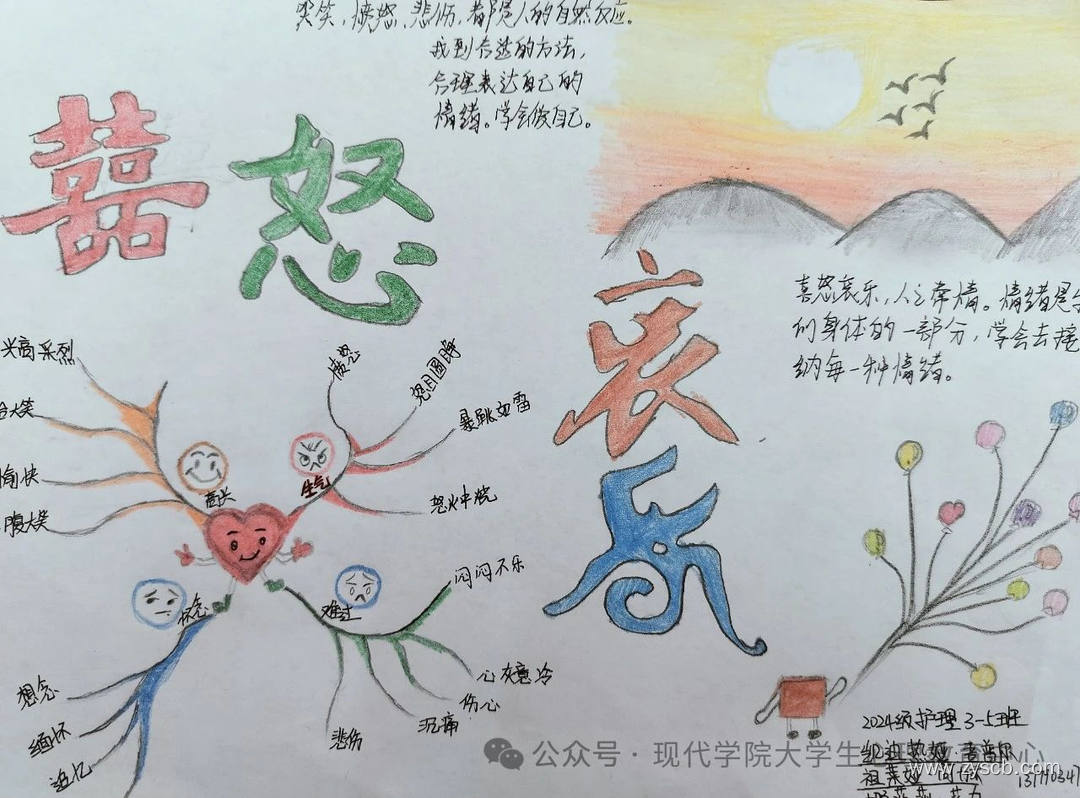 哭笑,愤怒、悲伤,都是人的自然反应。
找到合适的方法,
合理表达自己的
情绪。学会做自己。
囍
怒
哀
乐
喜怒哀乐,人之常情。情绪是
们身体的一部分,学会去接
纳每一种情绪。
兴高采烈
大笑
愉快
腹大笑
高兴
愤怒
怒目圆睁
暴跳如雷
怒火中烧
生气
怀念
想念
缅怀
追忆
难过
闷闷不乐
心灰意冷
伤心
沉痛
悲伤
2024级护理3-5班
公众号·现代学院大学生心
www.zyscb.com